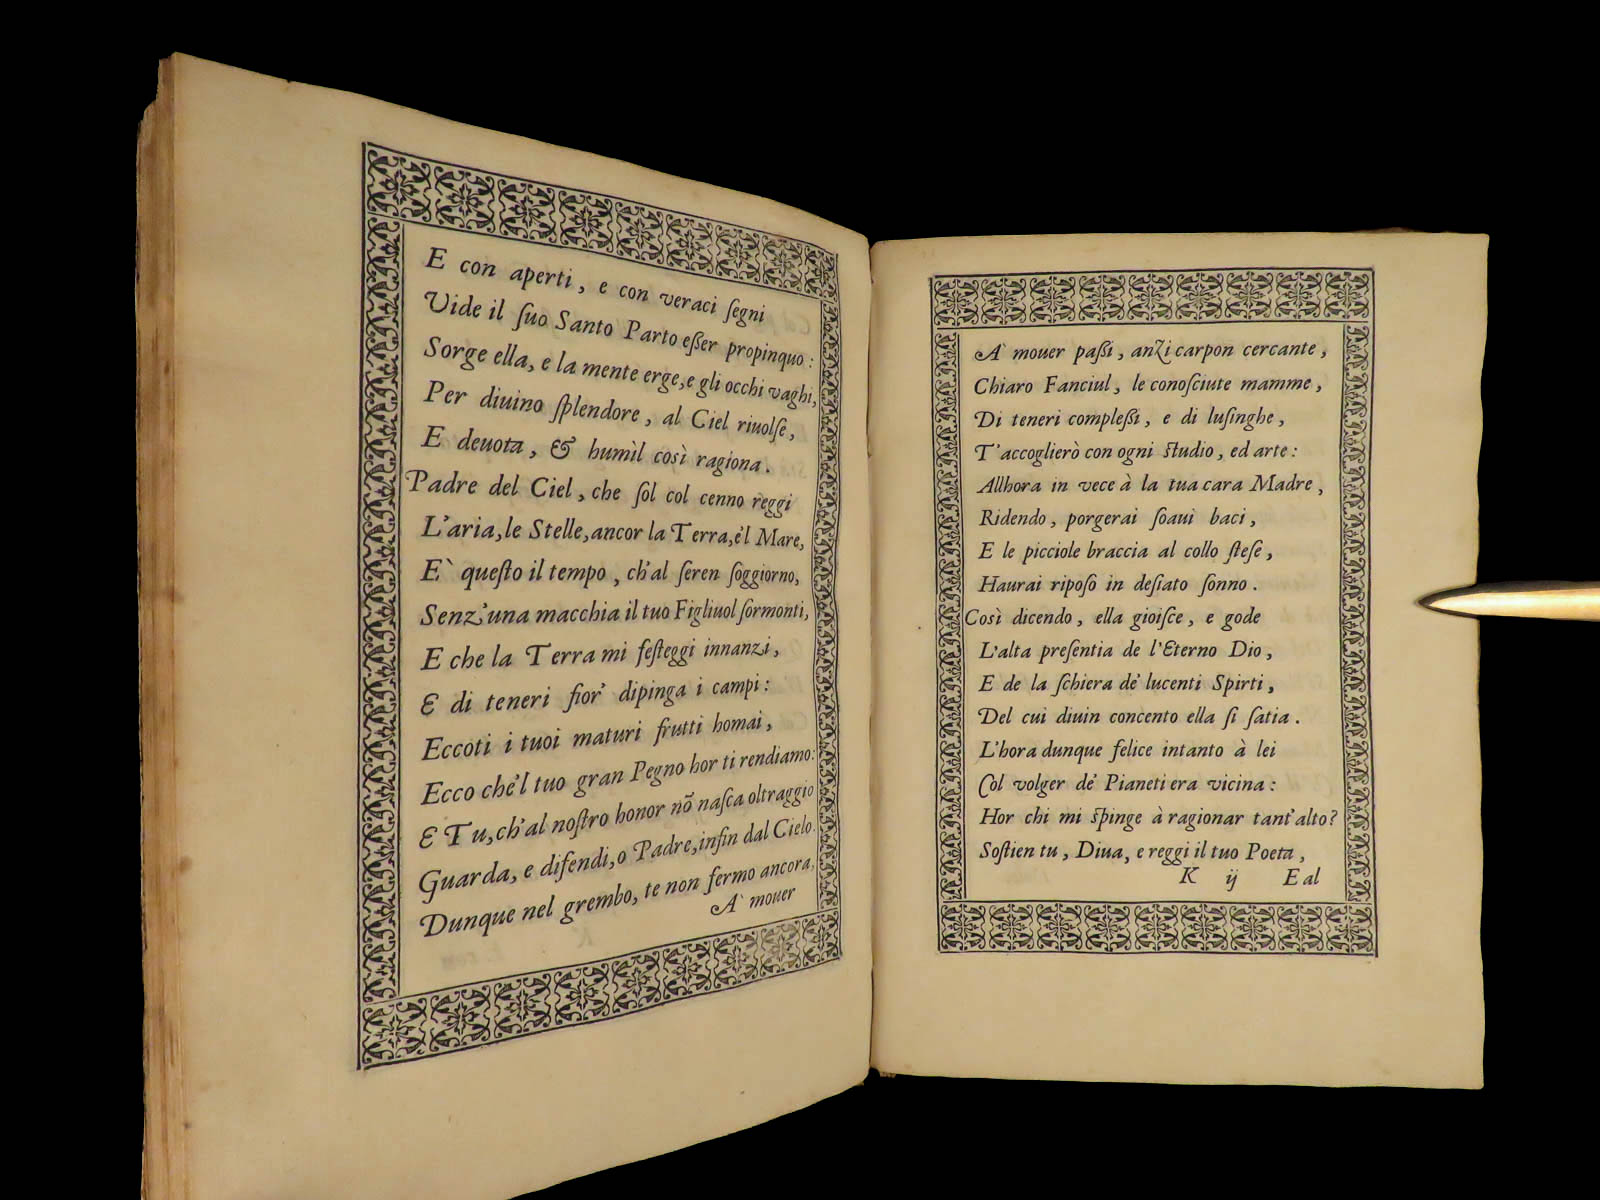 E con aperti, e con veraci ſegni
Vide il ſuo Santo Parto eſſer propinquo:
Sorge ella, e la mente erge, e gli occhi vaghi,
Per diuino ſplendore, al Ciel riuolſe,
E deuota, & humìl così ragiona.
Padre del Ciel, che ſol col cenno reggi
L'aria, le Stelle, ancor la Terra, e'l Mare,
E` queſto il tempo, ch'al ſeren ſoggiorno,
Senz'una macchia il tuo Figliuol ſormonti,
E che la Terra mi feſteggi innanzi,
E di teneri fior' dipinga i campi:
Eccoti i tuoi maturi frutti homai,
Ecco che'l tuo gran Pegno hor ti rendiamo:
E Tu, ch'al noſtro honor nõ naſca oltraggio
Guarda, e difendi, o Padre, infin dal Cielo.
Dunque nel grembo, te non fermo ancora,
A` mouer
A` mouer paſſi, anzi carpon cercante,
Chiaro Fanciul, le conoſciute mamme,
Di teneri compleſſi, e di luſinghe,
T'accoglierò con ogni ſtudio, ed arte:
Allhora in vece à la tua cara Madre,
Ridendo, porgerai ſoaui baci,
E le picciole braccia al collo ſteſe,
Haurai ripoſo in deſiato ſonno.
Così dicendo, ella gioiſce, e gode
L'alta preſentia de l'Eterno Dio,
E de la ſchiera de' lucenti Spirti,
Del cui diuin concento ella ſi ſatia.
L'hora dunque felice intanto à lei
Col volger de' Pianeti era vicina:
Hor chi mi ſpinge à ragionar tant'alto?
Soſtien tu, Diua, e reggi il tuo Poeta,
K ij E al